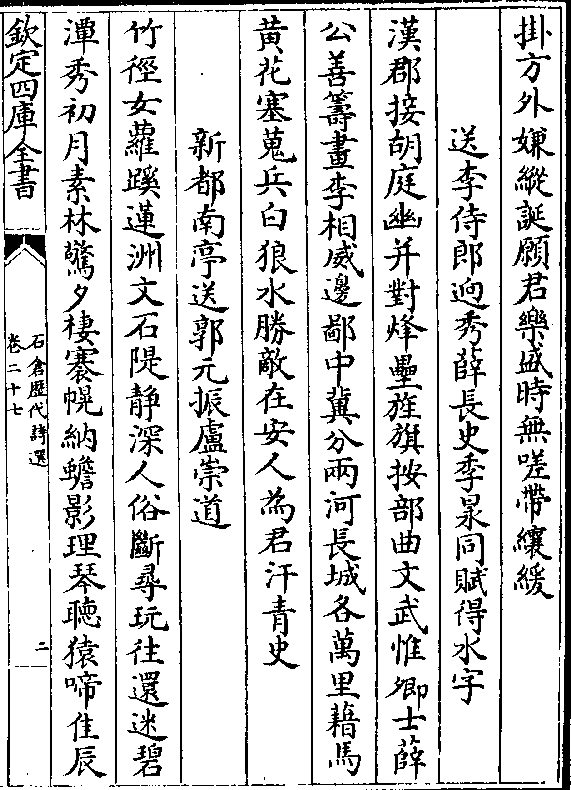 掛方外嫌縱誕願君樂盛時無嗟帶纕緩
送李侍郎迥秀薛長史季㫤同賦得水字
漢郡接胡庭幽并對烽壘旌旗按部曲文武惟卿士薛
公善籌畫李相威邊鄙中冀分兩河長城各萬里藉馬
黄花塞蒐兵白狼水勝敵在安人為君汗青史
新都南亭送郭元振盧崇道
竹徑女蘿蹊蓮洲文石隄静深人俗斷尋玩往還迷碧
潭秀初月素林驚夕棲褰幌納蟾影理琴聽猿啼佳辰
欽定四庫全書
石倉歷代詩選
卷二十七
二